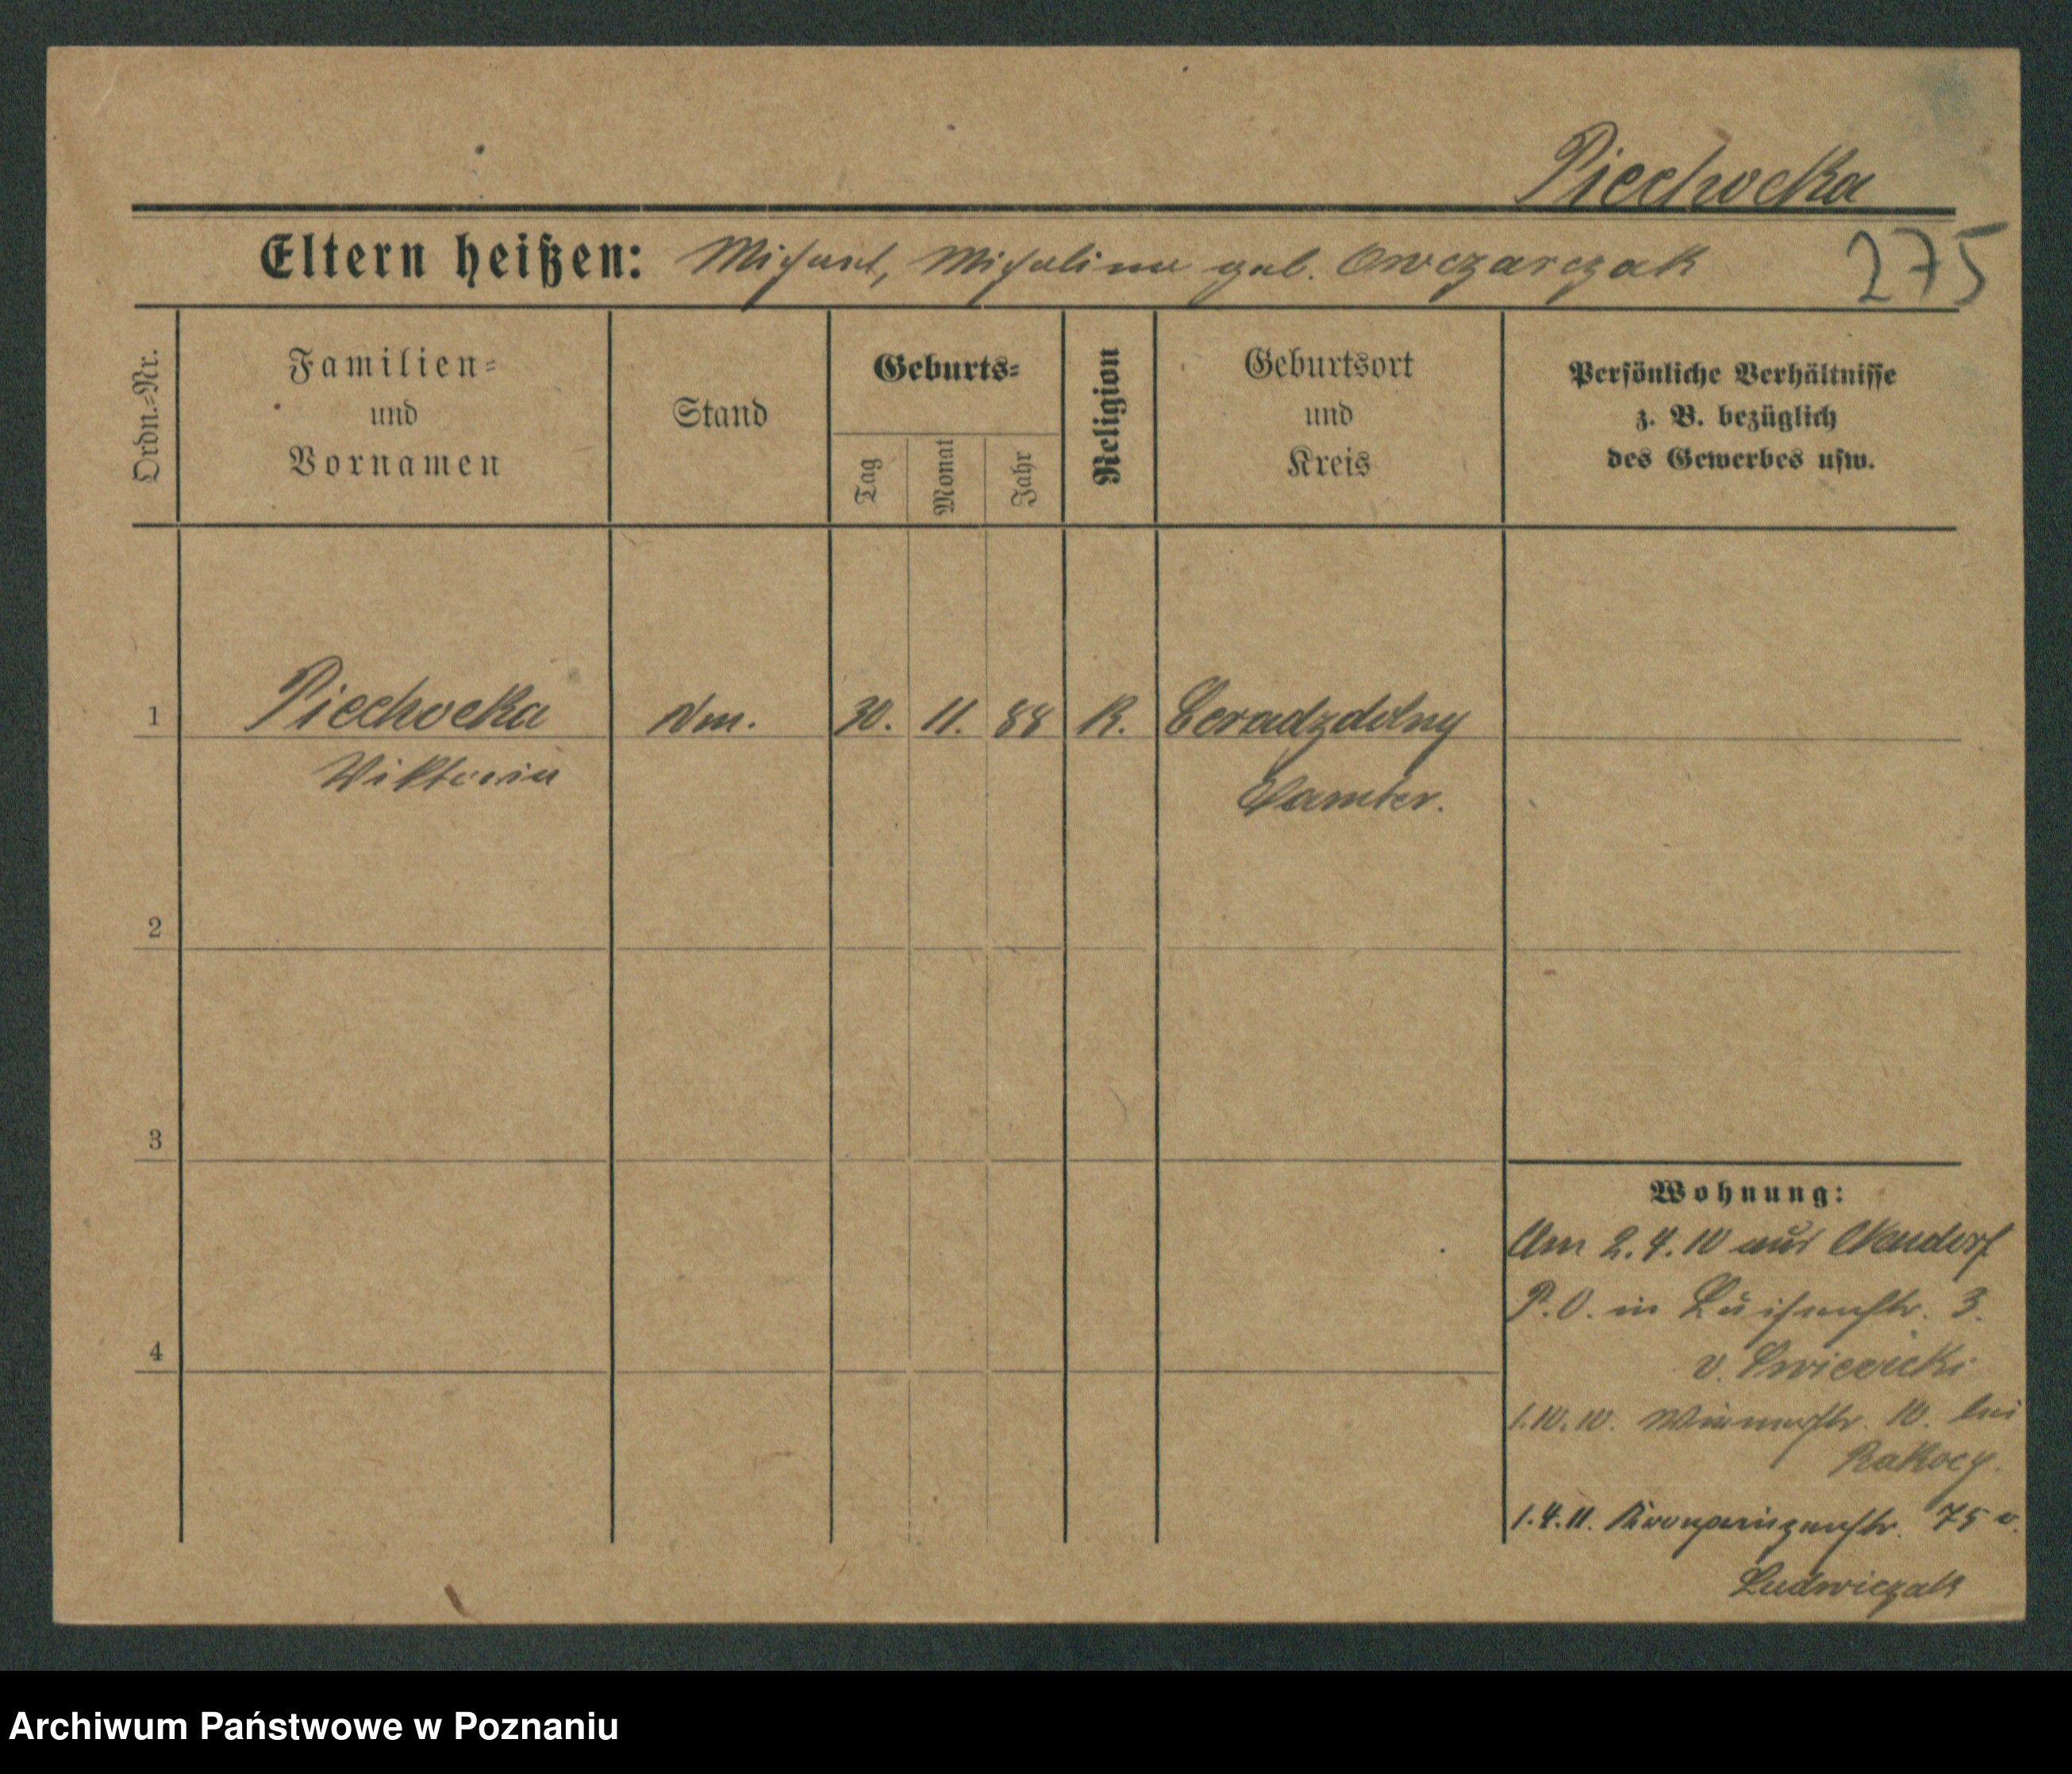 Piechocka
Eltern heißen: Michael, Michalina geb. Owczarczak 275
Ordn.-Nr.
Familien-
und
Vornamen
Stand
Geburts-
Tag
Monat
Jahr
Religion
Geburtsort
und
Kreis
Persönliche Verhältnisse
z. B. bezüglich
des Gewerbes usw.
1 Piechocka 30. 11. 88 K. Ceradzdolny
Viktoria Samter.
2
3
4
Wohnung:
Am 2.4.10 aus
P.O. in Luisenstr. 3.
v.
1.10.10. 10. bei
Rakocy.
1.4.11. Kronprinzenstr. 75
Ludwiczak
Archiwum Państwowe w Poznaniu